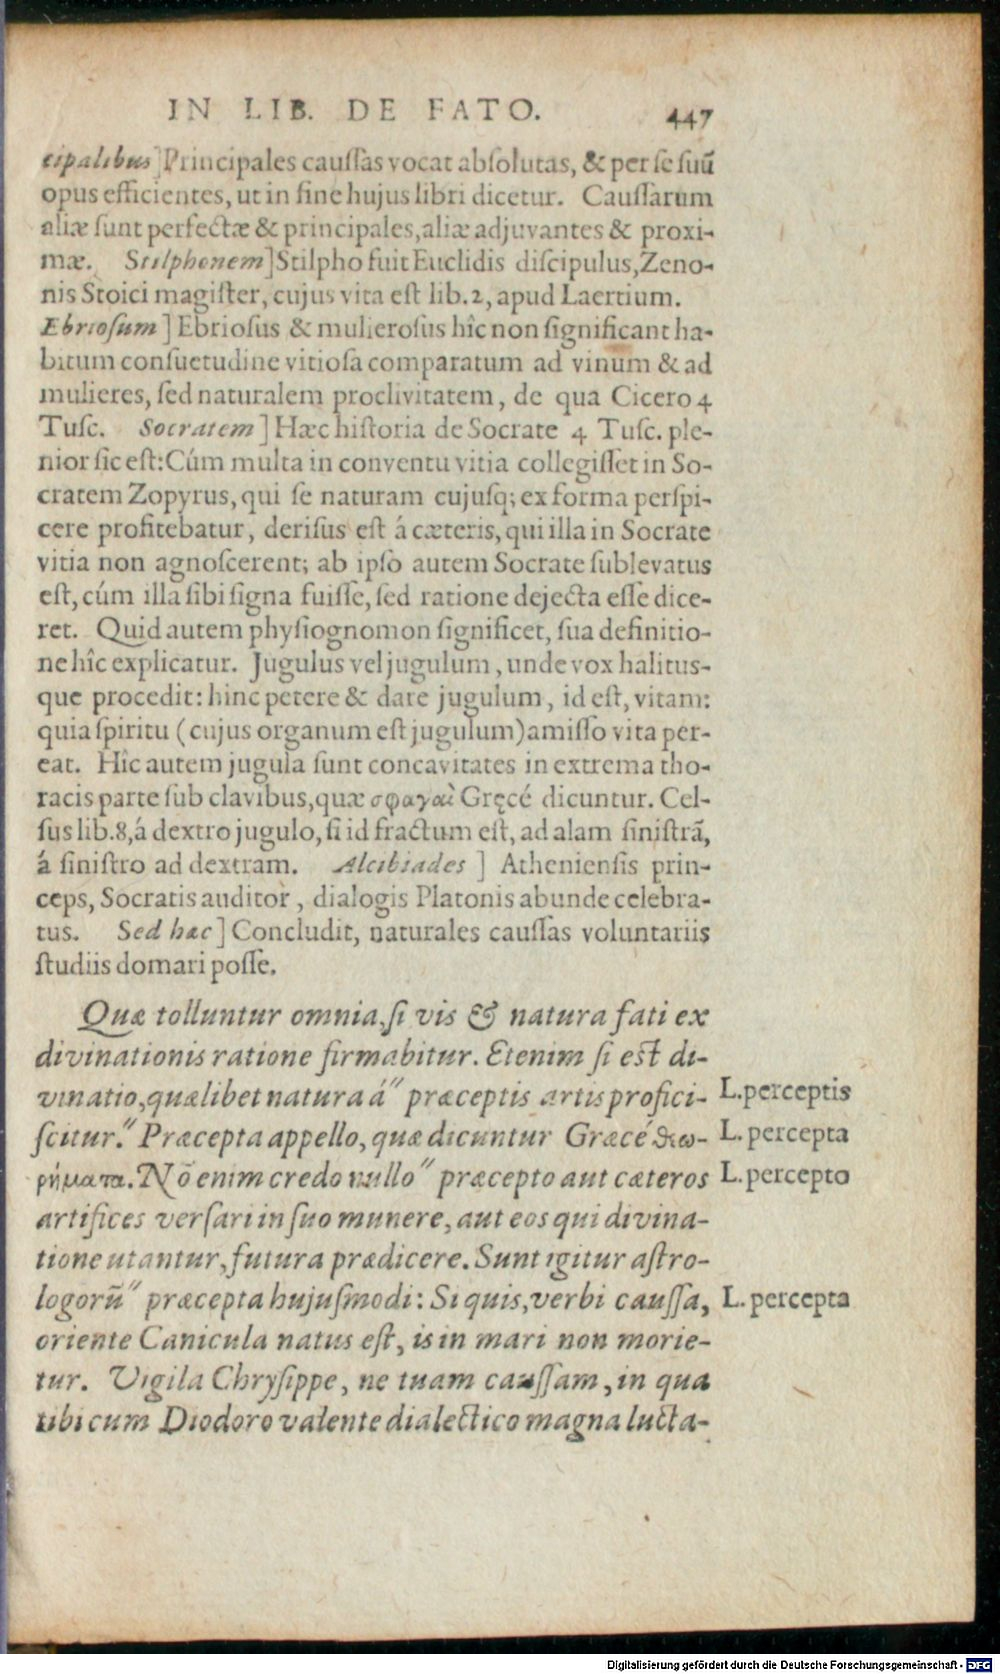 IN LIB. DE FATO. 447
cipalibus] Principales caussas vocat absolutas, & per se suũ
opus efficientes, ut in fine hujus libri dicetur. Caussarum
aliæ sunt perfectæ & principales, aliæ adjuvantes & proxi-
mæ. Stilphonem] Stilpho fuit Euclidis discipulus, Zeno-
nis Stoici magister, cujus vita est lib. 2, apud Laertium.
Ebriosum] Ebriosus & mulierosus hîc non significant ha-
bitum consuetudine vitiosa comparatum ad vinum & ad
mulieres, sed naturalem proclivitatem, de qua Cicero 4
Tusc. Socratem] Hæc historia de Socrate 4 Tusc. ple-
nior sic est: Cúm multa in conventu vitia collegisset in So-
cratem Zopyrus, qui se naturam cujusq; ex forma perspi-
cere profitebatur, derisus est á cæteris, qui illa in Socrate
vitia non agnoscerent; ab ipso autem Socrate sublevatus
est, cúm illa sibi signa fuisse, sed ratione dejecta esse dice-
ret. Quid autem physiognomon significet, sua definitio-
ne hîc explicatur. Jugulus vel jugulum, unde vox halitus-
que procedit: hinc petere & dare jugulum, id est, vitam:
quia spiritu (cujus organum est jugulum) amisso vita per-
eat. Hîc autem jugula sunt concavitates in extrema tho-
racis parte sub clavibus, quæ σφαγαὶ Gręcé dicuntur. Cel-
sus lib. 8, á dextro jugulo, si id fractum est, ad alam sinistrã,
á sinistro ad dextram. Alcibiades] Atheniensis prin-
ceps, Socratis auditor, dialogis Platonis abunde celebra-
tus. Sed hæc] Concludit, naturales caussas voluntariis
studiis domari posse.
Quæ tolluntur omnia, si vis & natura fati ex
divinationis ratione firmabitur. Etenim si est di-
vinatio, qualibet natura á" præceptis artis profici- L. perceptis
scitur." Præcepta appello, quæ dicuntur Græcé θεω- L. percepta
ρήματα. Nõ enim credo nullo" præcepto aut cæteros L. percepto
artifices versari in suo munere, aut eos qui divina-
tione utantur, futura prædicere. Sunt igitur astro-
logorũ" præcepta hujusmodi: Si quis, verbi caussa, L. percepta
oriente Canicula natus est, is in mari non morie-
tur. Vigila Chrysippe, ne tuam caussam, in qua
tibi cum Diodoro valente dialectico magna lucta-
Digitalisierung gefördert durch die Deutsche Forschungsgemeinschaft - DFG